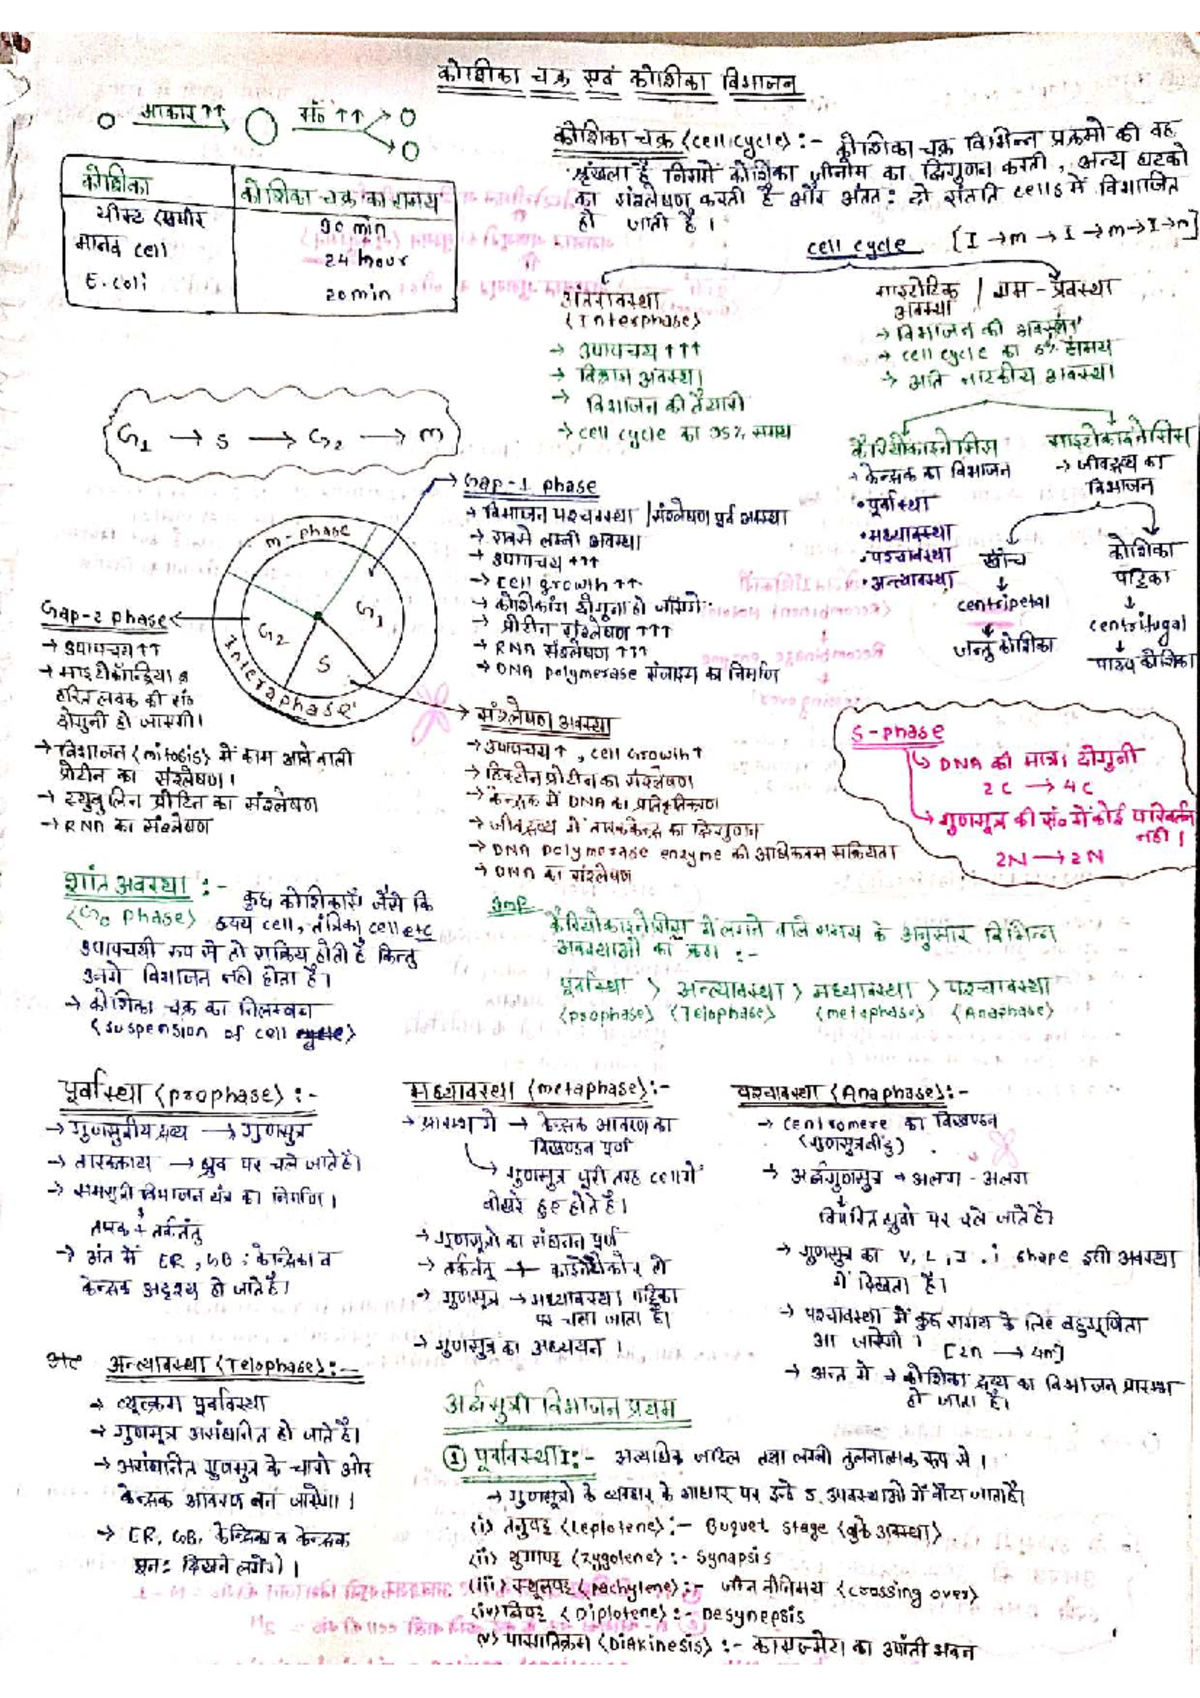 कोशिका चक्र एवं कोशिका विभाजन
आकार ↑↑ सं० ↑↑
कोशिका कोशिका चक्र का समय
यीस्ट 90 min
मानव cell 24 hour
E.coli 20 min
कोशिका चक्र (cell cycle) :- कोशिका चक्र विभिन्न प्रक्रमो की वह
श्रृंखला है जिसमें कोशिका जीनोम का द्विगुणन करती, अन्य घटको
का संश्लेषण करती है और अंततः दो संतति cells में विभाजित
हो जाती है ।
cell cycle [I → m → I → m → I → m]
अंतरावस्था
(Interphase)
→ उपापचय ↑↑↑
→ विश्राम अवस्था
→ विभाजन की तैयारी
→ cell cycle का 95% समय
माइटोटिक अवस्था / सम-प्रावस्था
→ विभाजन की अवस्था
→ cell cycle का 5% समय
→ अति नाटकीय अवस्था
G1 → S → G2 → m
कैरियोकाइनेसिस
→ केन्द्रक का विभाजन
• पूर्वावस्था
• मध्यावस्था
• पश्चावस्था
• अन्त्यावस्था
साइटोकाइनेसिस
→ जीवद्रव्य का
विभाजन
खाँच
centripetal
जन्तु कोशिका
कोशिका
पट्टिका
centrifugal
पादप कोशिका
Gap-1 phase
→ विभाजन पश्चावस्था / संश्लेषण पूर्व अवस्था
→ सबसे लम्बी अवस्था
→ उपापचय ↑↑↑
→ cell growth ↑↑
→ कोशिकांग दोगुना हो जायेंगे
→ प्रोटीन संश्लेषण ↑↑↑
→ RNA संश्लेषण ↑↑↑
→ DNA polymerase एंजाइम का निर्माण
m-phase
G1
G2
S
Interaphase
Gap-2 phase
→ उपापचय ↑↑
→ माइटोकॉन्ड्रिया व
हरित लवक की सं०
दोगुनी हो जायेगी।
→ विभाजन (mitosis) में काम आने वाली
प्रोटीन का संश्लेषण ।
→ ट्युबुलिन प्रोटिन का संश्लेषण
→ RNA का संश्लेषण
संश्लेषण अवस्था
→ उपापचय ↑, cell Growth ↑
→ हिस्टोन प्रोटीन का संश्लेषण
→ केन्द्रक में DNA का प्रतिकृतिकरण
→ जीवद्रव्य में तारककेन्द्र का द्विगुणन
→ DNA polymerase enzyme की अधिकतम सक्रियता
→ DNA का संश्लेषण
S-phase
DNA की मात्रा दोगुनी
2C → 4C
गुणसूत्र की सं० में कोई परिवर्तन
नही ।
2N → 2N
शांत अवस्था :- कुछ कोशिकाएँ जैसे कि
(G0 phase) ह्रदय cell, तंत्रिका cell etc
उपापचयी रूप से तो सक्रिय होती है किन्तु
उनमे विभाजन नही होता है।
→ कोशिका चक्र का निलम्बन
(suspension of cell cycle)
Imp
कैरियोकाइनेसिस में लगने वाले समय के अनुसार विभिन्न
अवस्थाओं का क्रम :-
पूर्वावस्था > अन्त्यावस्था > मध्यावस्था > पश्चावस्था
(prophase) (Telophase) (metaphase) (Anaphase)
पूर्वावस्था (prophase) :-
→ गुणसूत्रीय द्रव्य → गुणसूत्र
→ तारककाय → ध्रुव पर चले जाते है।
→ समसूत्री विभाजन यंत्र का निर्माण ।
तारक + तर्कतंतु
→ अंत में ER, GB, केन्द्रिका व
केन्द्रक अदृश्य हो जाते है।
मध्यावस्था (metaphase) :-
→ प्रारम्भ में → केन्द्रक आवरण का
विखण्डन पूर्ण
गुणसूत्र पूरी तरह cell में
बिखरे हुए होते है।
→ गुणसूत्रो का संघनन पूर्ण
→ तर्कतंतु → काइनेटोकोर से
→ गुणसूत्र → मध्यावस्था पट्टिका
पर चला जाता है।
→ गुणसूत्र का अध्ययन ।
पश्चावस्था (Anaphase) :-
→ centromere का विखण्डन
(गुणसूत्रबिंदु)
→ अर्द्धगुणसूत्र → अलग-अलग
विपरित ध्रुवो पर चले जाते है।
→ गुणसूत्र का V, L, J, i shape इसी अवस्था
में दिखता है।
→ पश्चावस्था में कुछ समय के लिए बहुगुणिता
आ जायेगी । [2n → 4n]
→ अन्त में → कोशिका द्रव्य का विभाजन प्रारम्भ
हो जाता है।
अन्त्यावस्था (Telophase) :-
→ व्युत्क्रम पूर्वावस्था
→ गुणसूत्र असंघनित हो जाते है।
→ असंघनित गुणसूत्र के चारो ओर
केन्द्रक आवरण बन जायेगा ।
→ ER, GB, केन्द्रिका व केन्द्रक
पुनः दिखने लगेंगे ।
अर्द्धसूत्री विभाजन प्रथम
① पूर्वावस्था I :- अत्यधिक जटिल तथा लम्बी तुलनात्मक रूप से ।
→ गुणसूत्रो के व्यवहार के आधार पर इन्हे 5 अवस्थाओं में बाँटा जाता है।
(i) तनुपट्ट (Leptotene) :- Buquet stage (बुके अवस्था)
(ii) युग्मपट्ट (Zygotene) :- Synapsis
(iii) स्थूलपट्ट (Pachylene) :- जीन विनिमय (crossing over)
(iv) द्विपट्ट (Diplotene) :- Desynepsis
(v) पारगतिक्रम (Diakinesis) :- काएज्मेटा का उपांती भवन